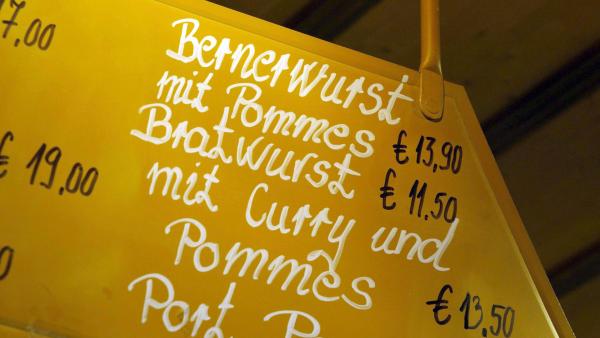 17,00
BernerWurst
mit Pommes € 13,90
BratWurst € 11.50
€ 19,00
mit Curry und
Pommes € 13,50